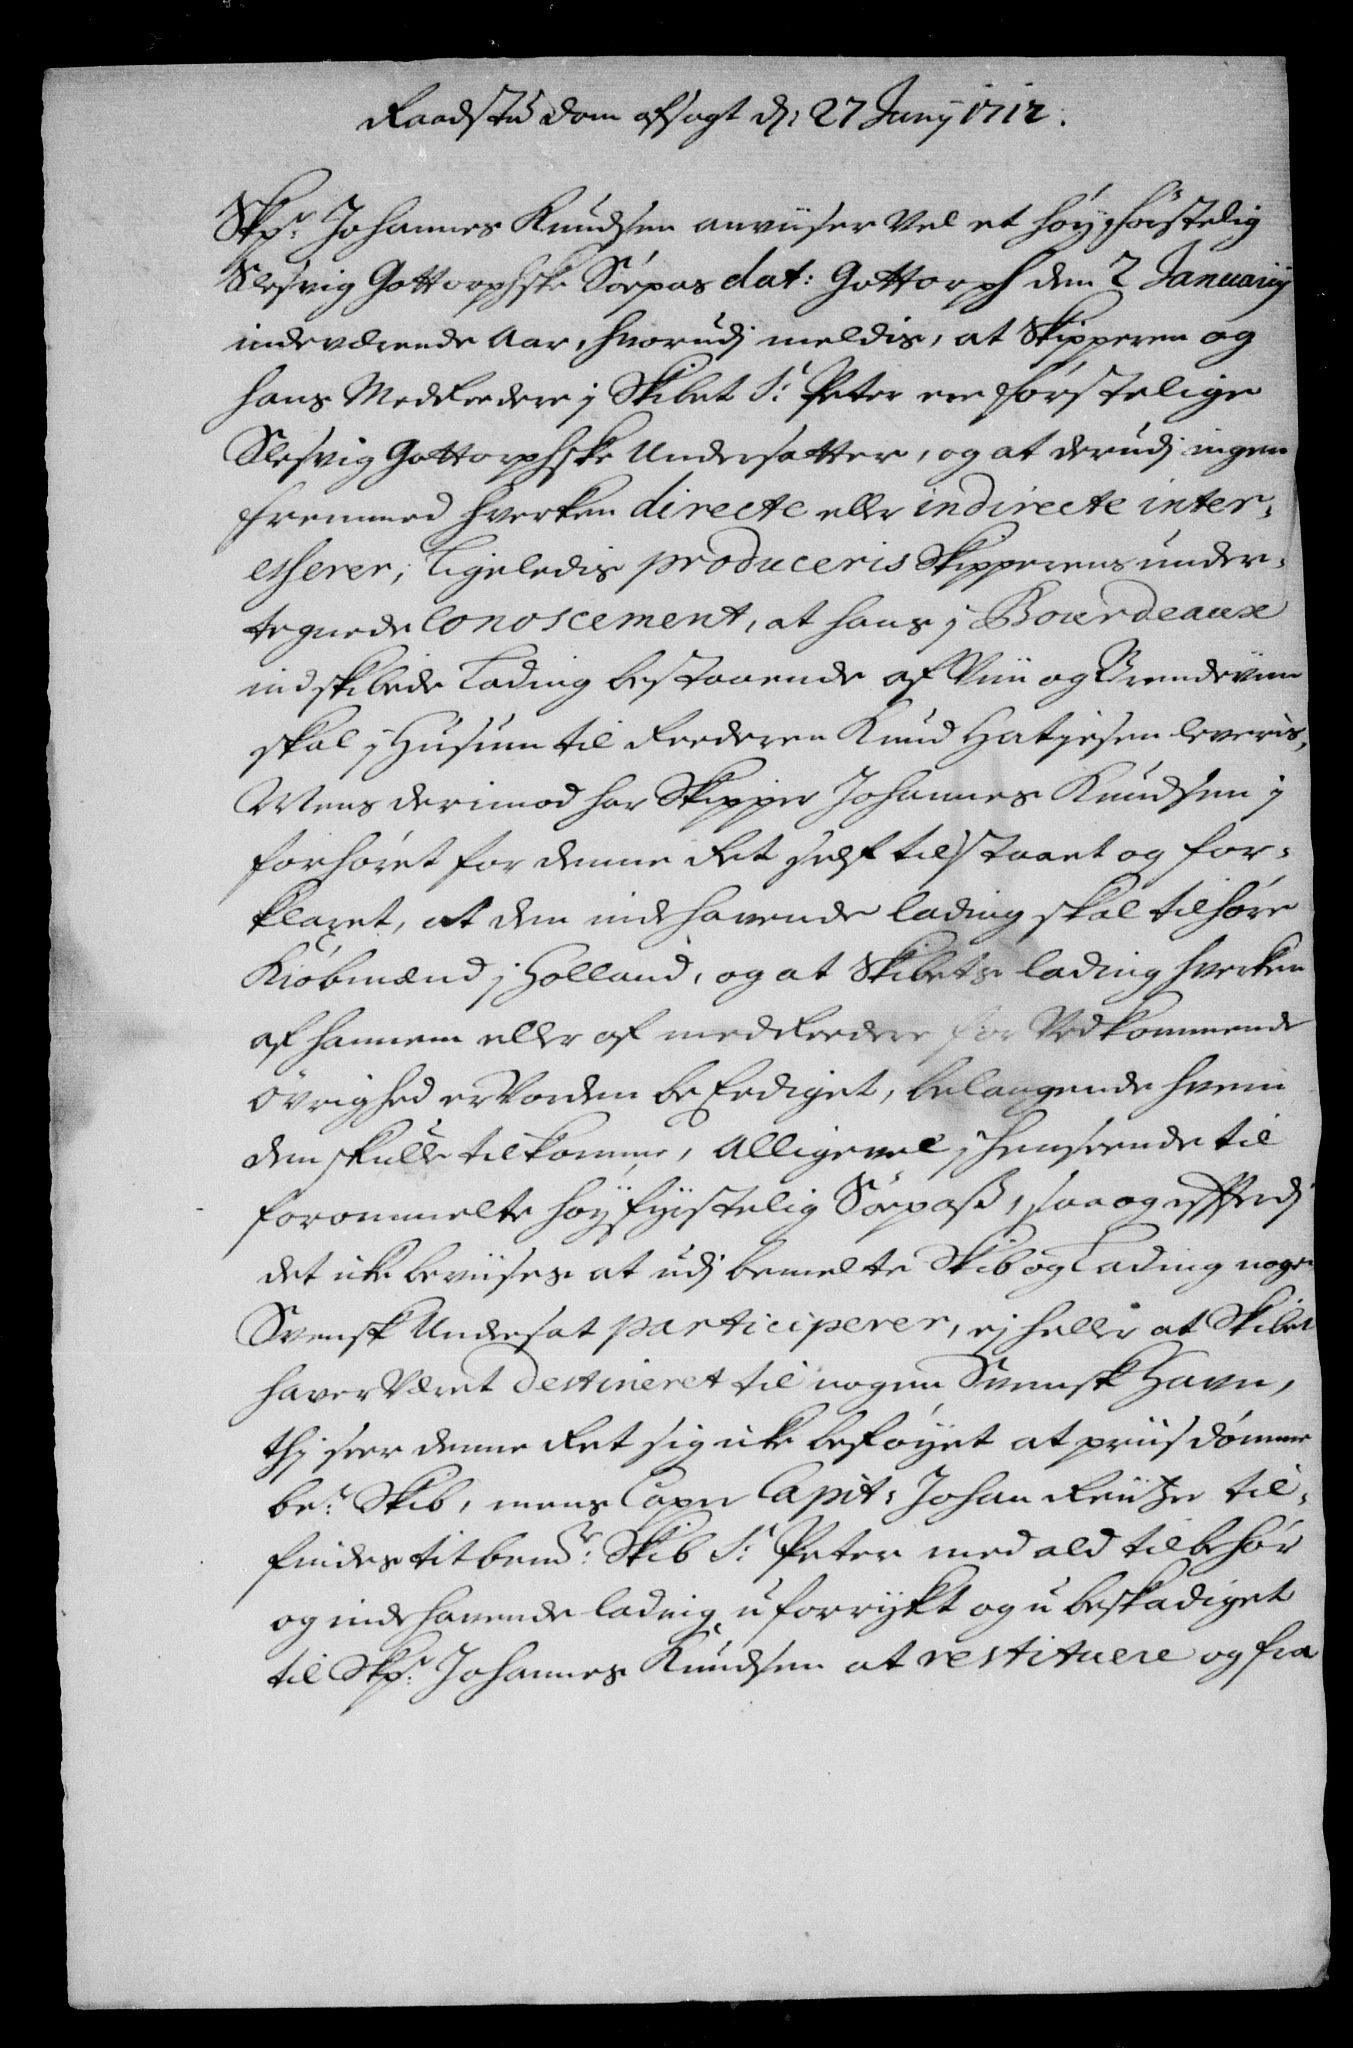 Raadstu dom afsagt d: 27 Junÿ 1712.
Skpr. Johannes Knudsen anviiser Vel et høy-førstelig
Slesvig Gottorphske Søepas dat: Gottorph den 2 Januarij
indeværende Aar, hvorudj meldis, at Skipperen og
hans MedReedere j Skibet St. Peter ere førstelige
Slesvig Gottorphske Undersatter, og at derudj ingen
fremmed hverken directe eller indirecte inter-
esserer, Ligeledis produceris Skipperens under-
tegnede Conoscement, at hans j Bourdeaux
indskibede Lading bestaaende af Viin og Brendeviin
skal j Husum til Reederen Knud Hatjesen leveris,
Mens derimod har Skipper Johannes Knudsen j
forhøret for denne Ret self tilstaaet og for-
klaret, at den indehavende lading skal tilhøre
Kiøbmænd j Holland, og at Skibets lading hverken
af hannem eller af medReedere for Vedkommende
Øvrighed er Vorden beEediget, belangende hvem
den skulle tilkomme, Alligevel j henseende til
forommelte høyfyrstelig Søepass, saa og efterdj
det icke beviises at udj bemelte Skib og Lading nogen
Svensk Undersat participerer, ej heller at Skibet
haver Været destineret til nogen Svensk Havn,
thj seer denne Ret sig icke beføyet at priisdømme
bete. Skib, mens Caper Capit: Johan tilfindes
titbemte. Skib St. Peter med ald tilbehør
og indehavende lading uforrykt og ubeskadiget
til Skpr. Johannes Knudsen at restituere og fra